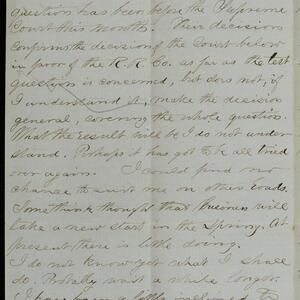 question has been before the Supreme
Court this month. Their decision
confirms the decision of the Court below
in favor of the R.R. Co. as far as the test
question is concerned, but does not, if
I understand it, make the decision
general, covering the whole question.
What the result will be I do not under
stand. Perhaps it has got to be all tried
over again. I could find no
chance to suit me on other roads.
Some think thought that business will
take a new start in the Spring. At
present there is little doing.
I do not know yet what I shall
do. Probably wait a while longer.
I have been a little inclined to